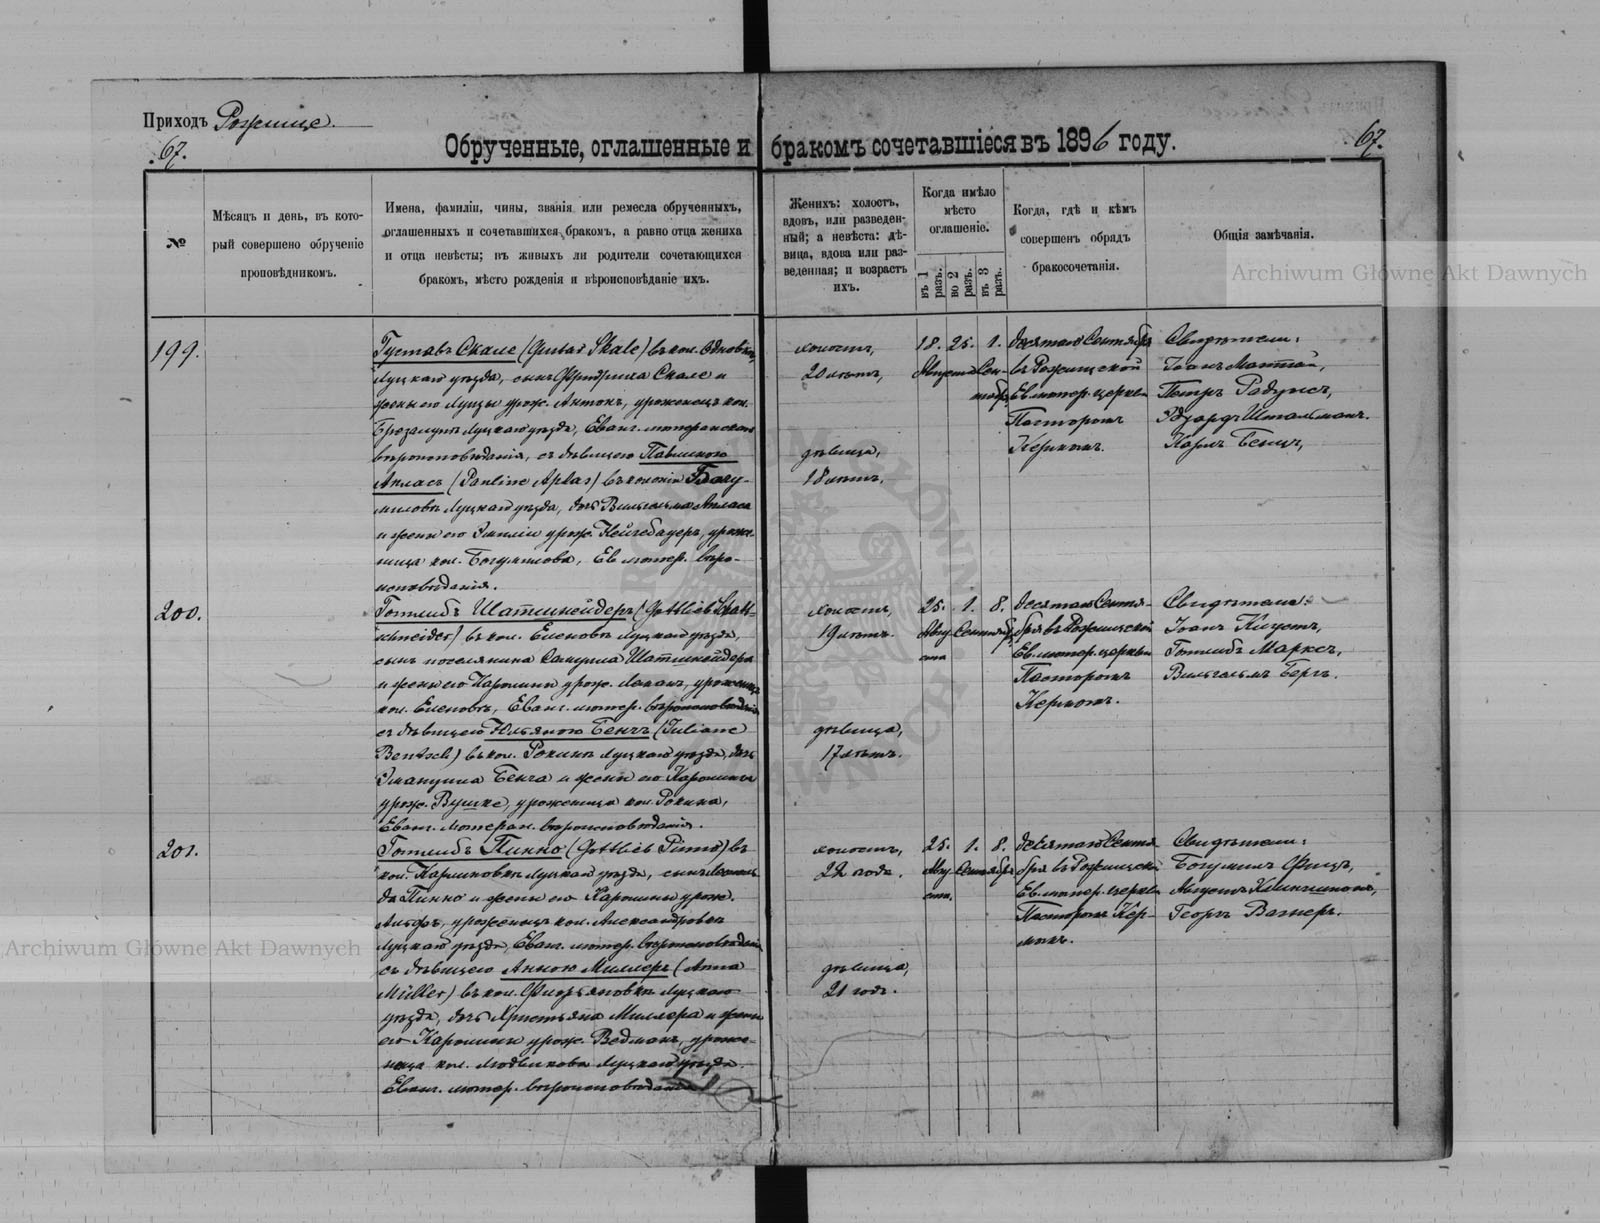 Приходъ Рожище.
67.
Обрученные, оглашенные и бракомъ сочетавшіеся въ 1896 году.
67.
№
Мѣсяцъ и день, въ кото-
рый совершено обрученіе
проповѣдникомъ.
Имена, фамиліи, чины, званія или ремесла обрученныхъ,
оглашенныхъ и сочетавшихся бракомъ, а равно отца жениха
и отца невѣсты; въ живыхъ ли родители сочетающихся
бракомъ, мѣсто рожденія и вѣроисповѣданіе ихъ.
Женихъ: холостъ,
вдовъ, или разведен-
ный; а невѣста: дѣ-
вица, вдова или раз-
веденная; и возрастъ
ихъ.
Когда имѣло
мѣсто
оглашеніе.
въ 1 разъ.
во 2 разъ.
въ 3 разъ.
Когда, гдѣ и кѣмъ
совершенъ обрядъ
бракосочетанія.
Общія замѣчанія.
199.
Густавъ Скале (Gustav Skale) въ кол.
Луцкаго уѣзда, сынъ Фридриха Скале и
жены его Луизы урож. Антонъ, уроженецъ кол.
Луцкаго уѣзда, Еванг. лютеранскаго
вѣроисповѣданія, съ дѣвицею Павлиною
Апласъ (Pauline Aplas) въ колоніи Богу-
миловкѣ Луцкаго уѣзда, дочь Вильгельма Апласа
и жены его Эмиліи урож. Нейгебауеръ, уроже-
ница кол. Богумилова, Ев. лютер. вѣро-
исповѣданія.
холостъ,
20 лѣтъ,
дѣвица,
18 лѣтъ.
18. 25. 1.
Августа Сен-
тября
десятаго Сентября
въ Рожищской
Ев. лютер. церкви
Пасторомъ
Керномъ.
Свидѣтели:
Іоанъ Маттай,
Петръ Радунсъ,
Эдуардъ Штальманъ.
Карлъ Бенцъ,
200.
Готлибъ Шатшнейдеръ (Gottlieb Schatt-
schneider) въ кол. Еленовкѣ Луцкаго уѣзда,
сынъ поселянина Самуила Шатшнейдера
и жены его Каролины урож. уроженецъ
кол. Еленовкѣ, Еванг. лютер. вѣроисповѣданія
съ дѣвицею Юльяною Бенчъ (Juliane
Bentsch) въ кол. Рокини Луцкаго уѣзда, дочь
Эмануила Бенча и жены его Каролины
урож. Вушке, уроженица кол. Рокина,
Еванг. Лютеран. вѣроисповѣданія.
холостъ,
19 лѣтъ.
дѣвица,
17 лѣтъ.
25. 1. 8.
Авгу- Сентября
ста
десятаго Сентя-
бря въ Рожищской
Ев. лютер. церкви
Пасторомъ
Керномъ.
Свидѣтели:
Іоанъ Клустъ,
Готлибъ Марксъ,
Вильгельмъ Бергъ.
201.
Готлибъ Пинно (Gottlieb Pinno) въ
кол. Карлиновкѣ Луцкаго уѣзда, сынъ
Пинно и жены его Каролины урож.
уроженецъ кол. Александровки
Луцкаго уѣзда, Еванг. лютер. вѣроисповѣданія
съ дѣвицею Анною Миллеръ (Anna
Müller) въ кол. Флоріяновкѣ Луцкаго
уѣзда, дочь Христьяна Миллера и жены
его Каролины урож. Ведманъ, уроже-
ница кол. Людвикова Луцкаго уѣзда
Еванг. лютер. вѣроисповѣданія
холостъ,
22 года.
дѣвица,
21 годъ.
25. 1. 8.
Авгу- Сентября
ста.
десятаго Сентя-
бря въ Рожищской
Ев. лютер. церкви
Пасторомъ Кер-
номъ.
Свидѣтели:
Богумилъ Фицъ,
Августъ Клингманъ,
Георгъ Вагнеръ.
Archiwum Główne Akt Dawnych
Archiwum Główne Akt Dawnych